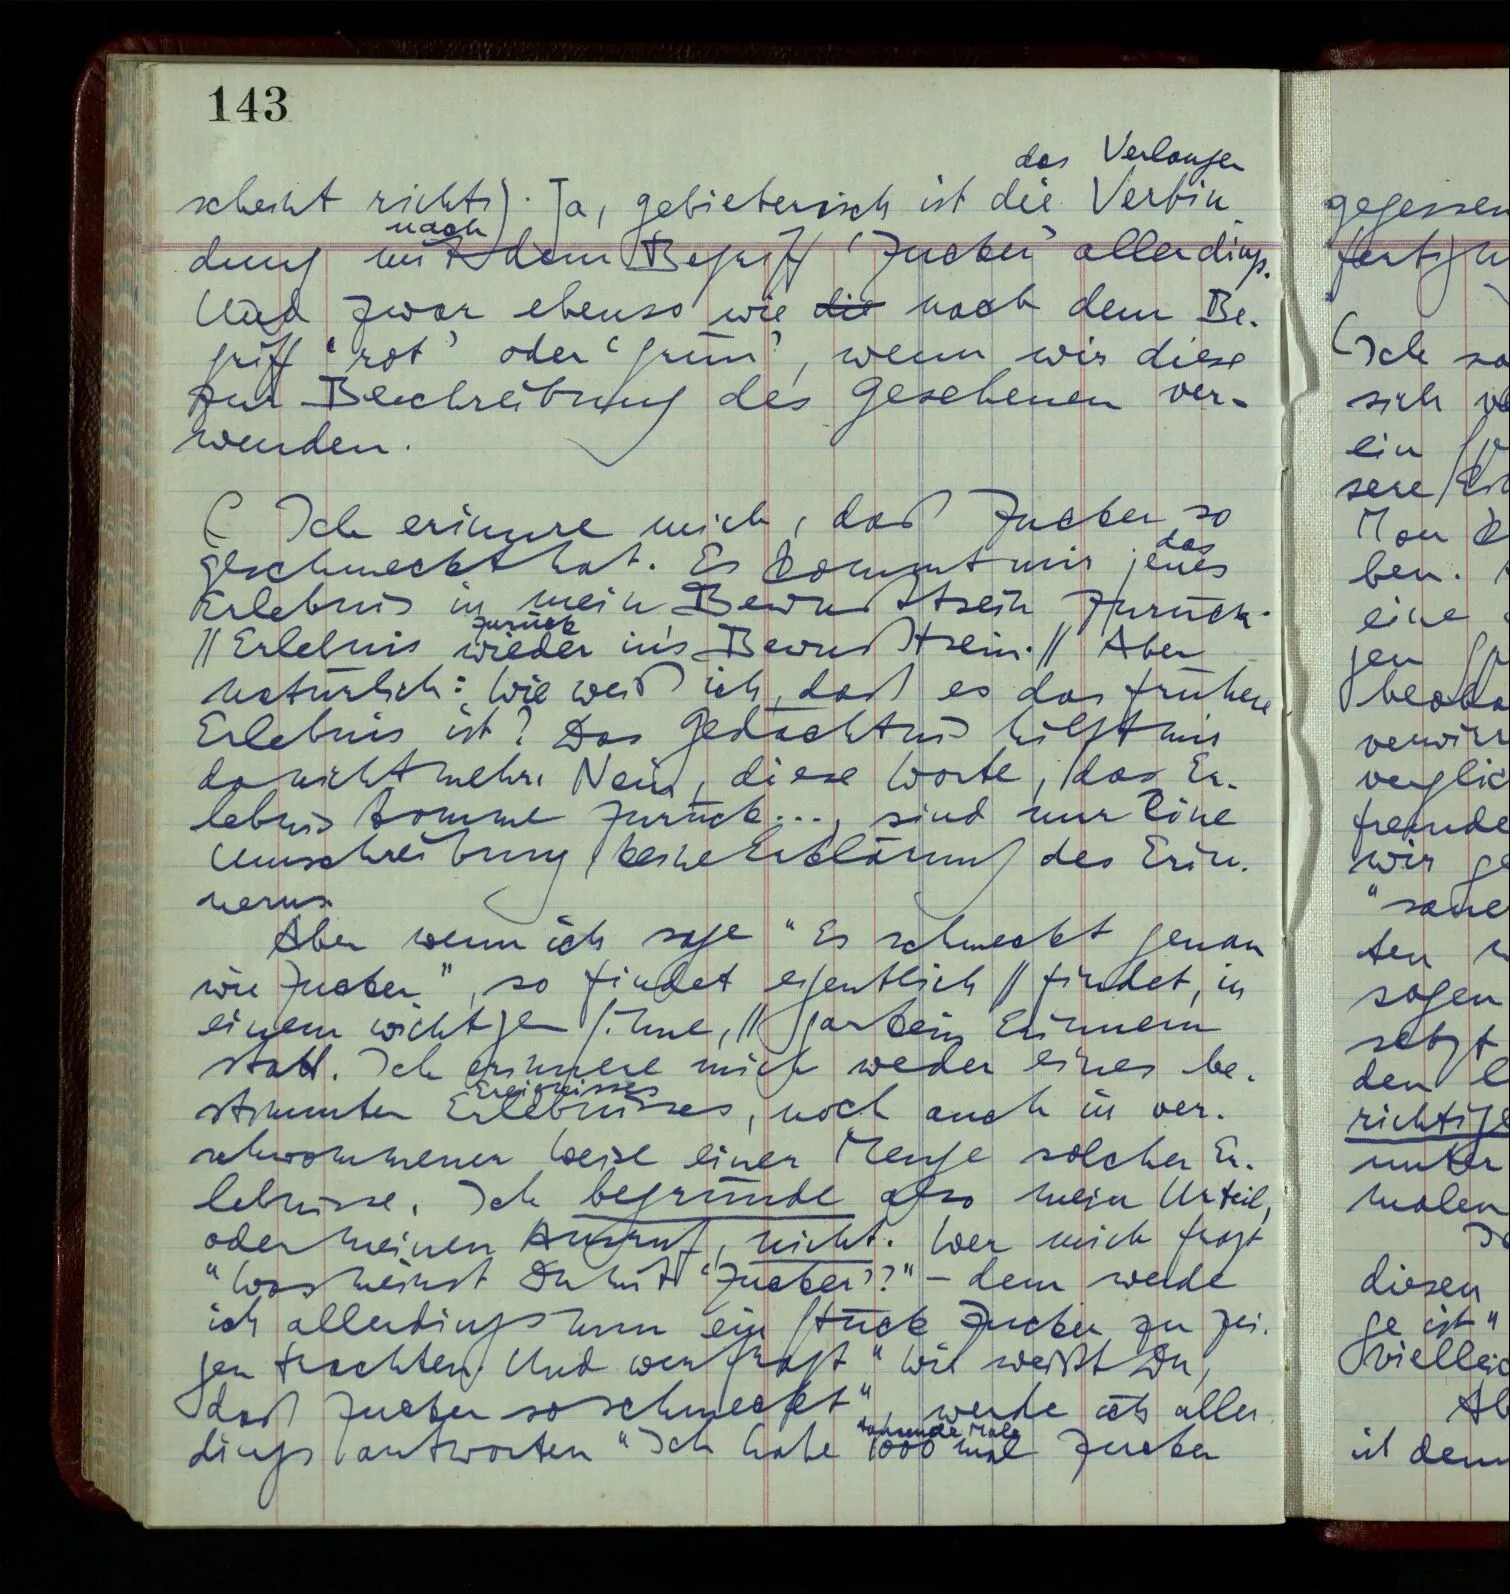 143
das Verlangen
scheint nichts). Ja, gebieterisch ist die Verbin-
nach
dung mit dem Begriff ‘Zucker’ allerdings.
Und zwar ebenso wie die nach dem Be-
griff ‘rot’ oder ‘grün’, wenn wir diese
zur Beschreibung des Gesehenen ver-
wenden.
( Ich erinnere mich, daß Zucker so
das
geschmeckt hat. Es kommt mir jenes
Erlebnis in mein Bewußtsein zurück.
zurück
|| Erlebnis wieder in's Bewußtsein. || Aber
natürlich: wie weiß ich, daß es das frühere
Erlebnis ist? Das Gedächtnis hilft mir
da nicht mehr. Nein, diese Worte, das Er-
lebnis komme zurück..., sind nur eine
Umschreibung, keine Erklärung des Erin-
nerns.
Aber wenn ich sage “Es schmeckt genau
wie Zucker”, so findet eigentlich || findet, in
einem wichtigen Sinne, || gar kein Erinnern
statt. Ich erinnere mich weder eines be-
Ereignisses
stimmten Erlebnisses, noch auch in ver-
schwommener Weise einer Menge solcher Er-
lebnisse. Ich begründe also mein Urteil,
oder meinen Ausruf, nicht. Wer mich fragt
“Was meinst Du mit ‘Zucker’?” – dem werde
ich allerdings nun ein Stück Zucker zu zei-
gen trachten. Und wer fragt “Wie weißt Du,
daß Zucker so schmeckt”, werde ich aller-
tausende Male
dings antworten “Ich habe 1000 mal Zucker
gegessen
(Ich
sich
ein
sere
Man
ben.
eine
gen
verglic
fremde
wir
ten
sagen
setzt
den
richtige
unter
malen
diesen
ge ist"
viellei
ist denn